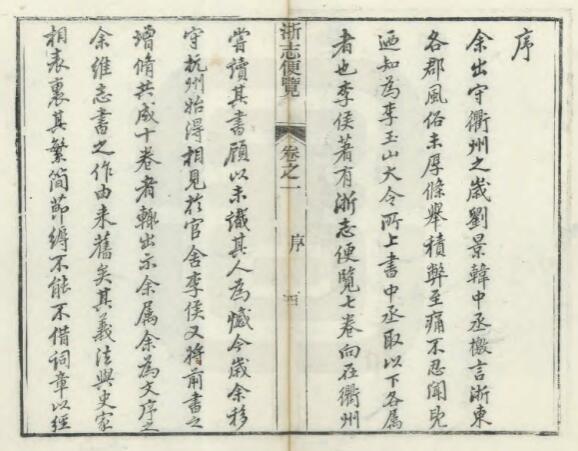 序
余出守衢州之歲劉景韓中丞檄言浙東
各郡風俗未厚條舉積弊至痛不忍聞見
迺知為李玉山大令所上書中丞取以下各屬
者也李侯著有浙志便覽七卷向在衢州
浙志便覽 卷之一 序 四
嘗讀其書顧以未識其人為憾今歲余移
守杭州始得相見於官舍李侯又將前書之
增脩共成十卷者輒出示余属余為文序之
余維志書之作由来舊矣其義法與史家
相表裏其繁簡節縟不能不借詞章以經